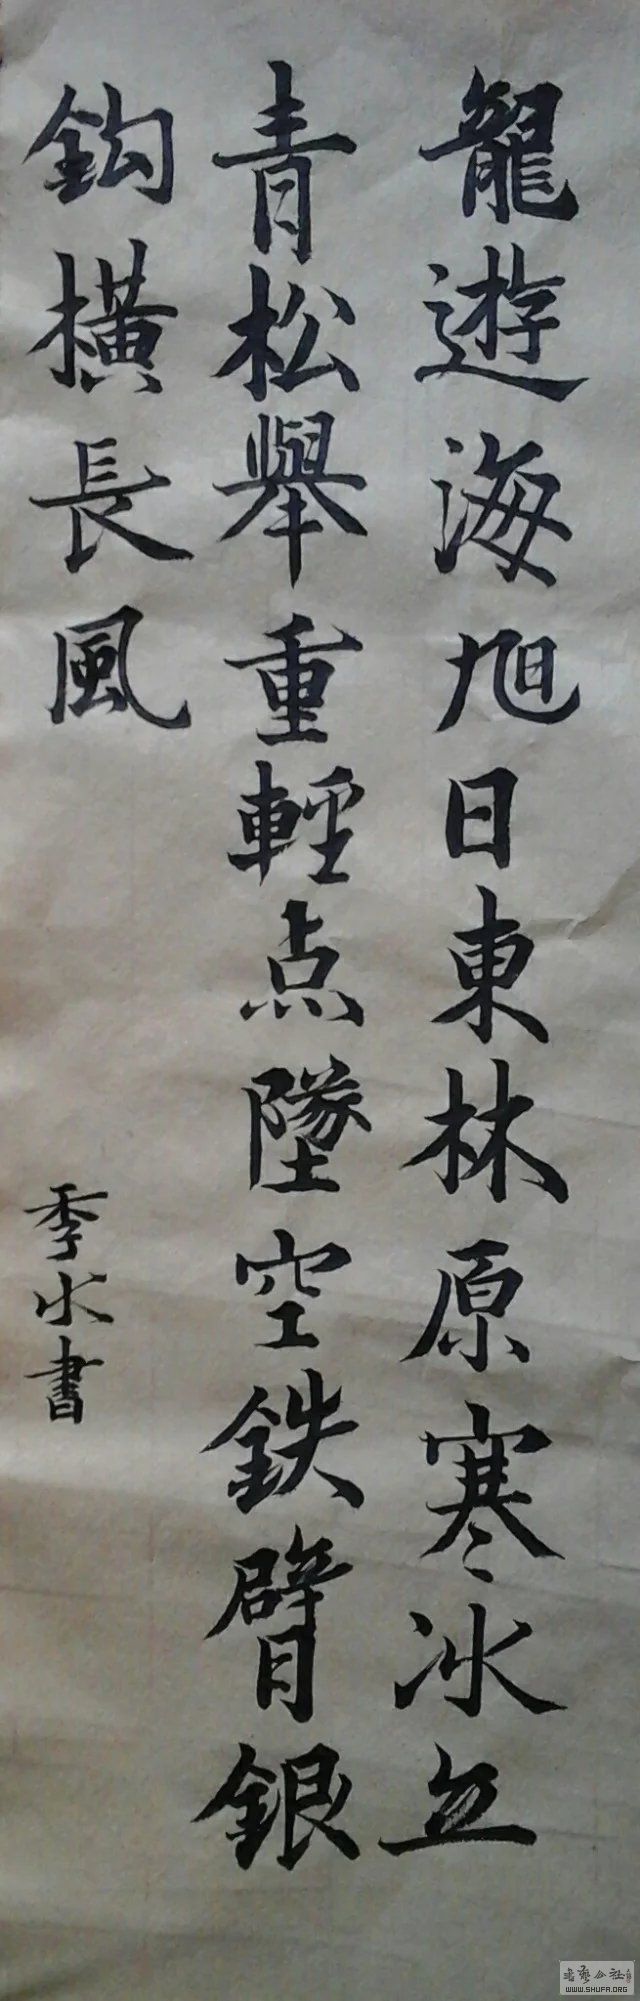 龍遊海旭日東林原寒冰立
青松舉重輕点墜空鉄臂銀
鈎橫長風
季水書
書藝公社
WWW.SHUFA.ORG